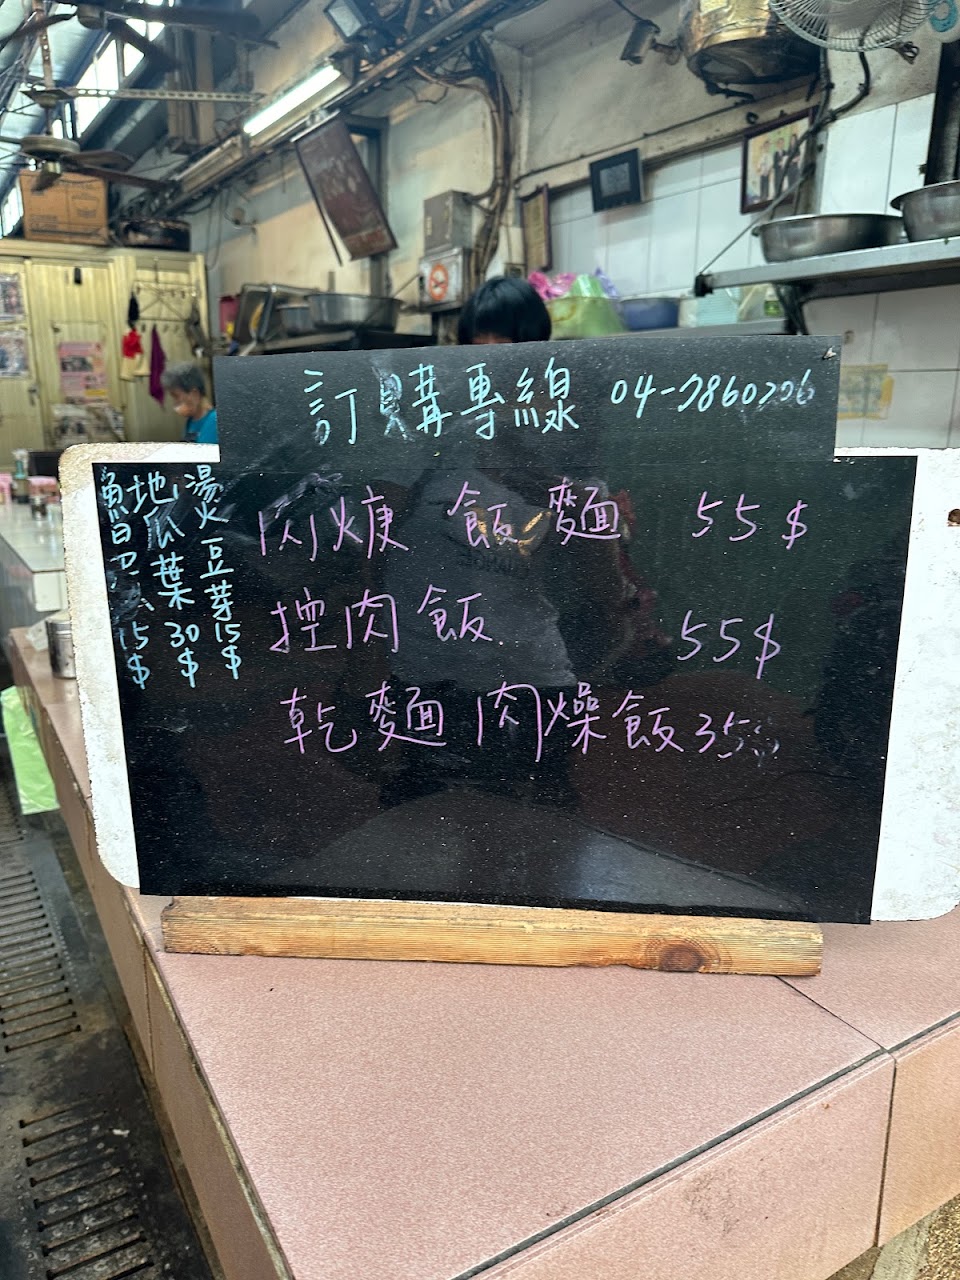 訂購專線
肉焿 飯 麵 55$
控肉飯 55$
乾麵 肉燥飯 35
燙豆芽 15$
地瓜葉 30$
15$